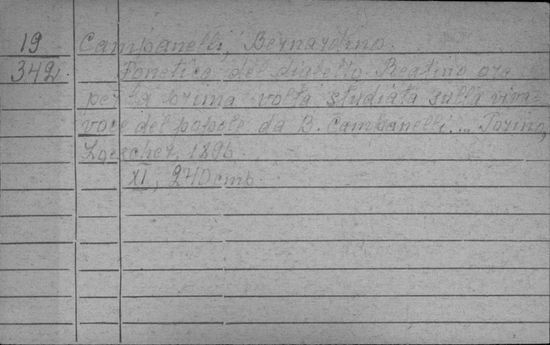 19 Campanelli, Bernardino.
342 Fonetica del dialetto Reatino ora
per la prima volta studiata sulla viva
voce del popolo da B. Campanelli. ... Torino,
Loescher, 1896.
XI, 240 cmb.